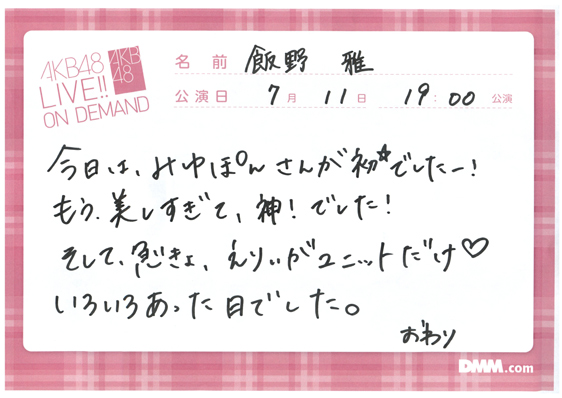 AKB48
LIVE!!
ON DEMAND
AKB
48
名前 飯野 雅
公演日 7月 11日 19:00 公演
今日は、みゆぽんさんが初☆でしたー!
もう、美しすぎて、神!でした!
そして、急きょ、えりぃがユニットだけ♡
いろいろあった日でした。
おわり
DMM.com